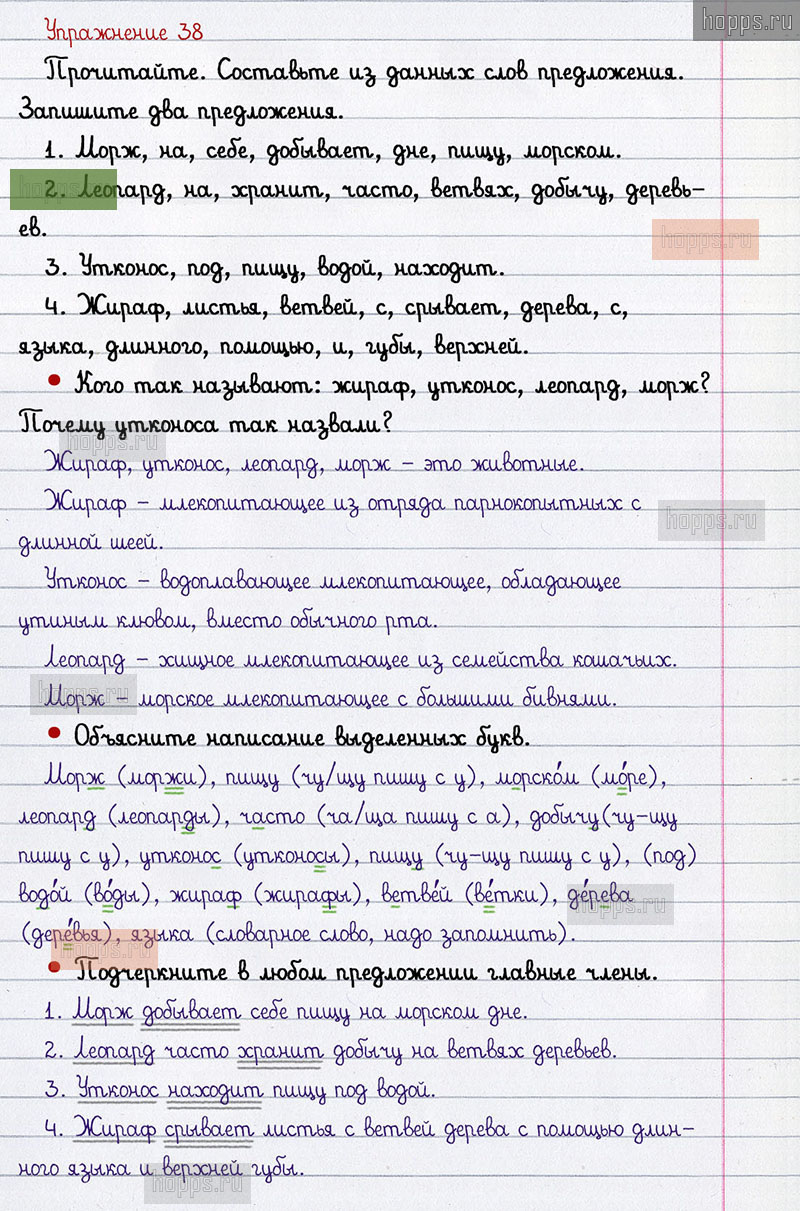 hopps.ru
Упражнение 38
Прочитайте. Составьте из данных слов предложения.
Запишите два предложения.
1. Морж, на, себе, добывает, дне, пищу, морском.
hopps.ru
2. Леопард, на, хранит, часто, ветвях, добычу, деревь-
ев.
hopps.ru
3. Утконос, под, пищу, водой, находит.
4. Жираф, листья, ветвей, с, срывает, дерева, с,
языка, длинного, помощью, и, губы, верхней.
• Кого так называют: жираф, утконос, леопард, морж?
Почему утконоса так назвали?
hopps.ru
Жираф, утконос, леопард, морж – это животные.
Жираф – млекопитающее из отряда парнокопытных с
hopps.ru
длинной шеей.
Утконос – водоплавающее млекопитающее, обладающее
утиным клювом, вместо обычного рта.
Леопард – хищное млекопитающее из семейства кошачьих.
hopps.ru
Морж – морское млекопитающее с большими бивнями.
• Объясните написание выделенных букв.
Морж (моржи), пищу (чу/щу пишу с у), морско́м (мо́ре),
леопард (леопарды), часто (ча/ща пишу с а), добычу(чу-щу
пишу с у), утконос (утконосы), пищу (чу-щу пишу с у), (под)
водо́й (во́ды), жираф (жирафы), ветве́й (ве́тки), де́рева
hopps.ru
(дере́вья), языка (словарное слово, надо запомнить).
hopps.ru
• Подчеркните в любом предложении главные члены.
1. Морж добывает себе пищу на морском дне.
2. Леопард часто хранит добычу на ветвях деревьев.
3. Утконос находит пищу под водой.
4. Жираф срывает листья с ветвей дерева с помощью длин-
ного языка и верхней губы.
hopps.ru